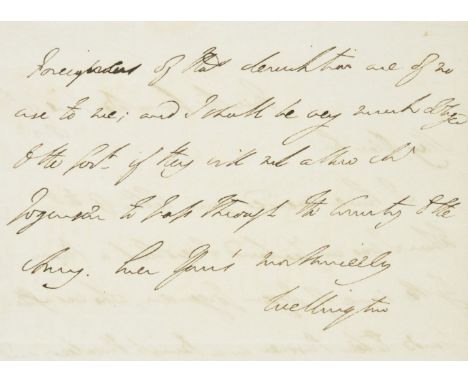 Foreigners of that description are of no
use to me; and I shall be very much obliged
to the Govt. if they will not allow Mr
to pass through the Country to the
Army. Ever Yours most sincerely
Wellington